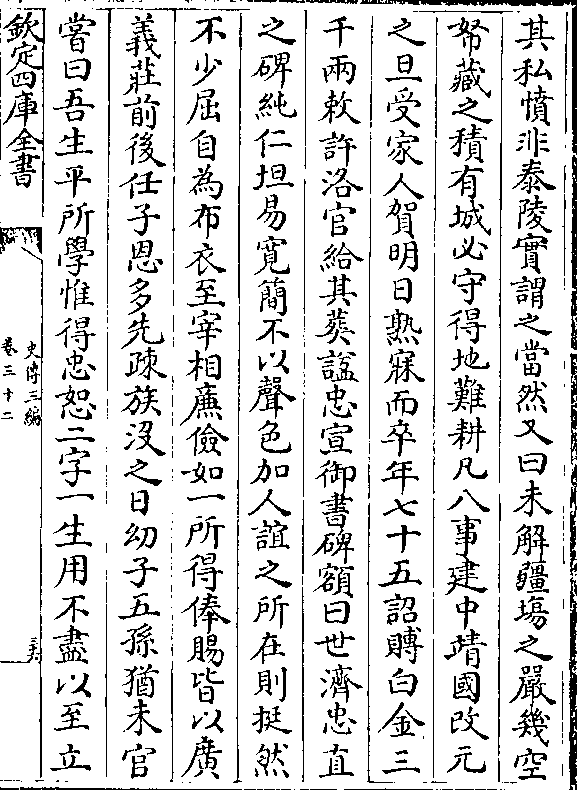 其私憤非泰陵實謂之當然又曰未解疆埸之嚴幾空
帑藏之積有城必守得地難耕凡八事建中靖國改元
之旦受家人賀明日熟寐而卒年七十五詔賻白金三
千兩敕許洛官給其葬諡忠宣御書碑額曰世濟忠直
之碑純仁坦易寬簡不以聲色加人誼之所在則挺然
不少屈自為布衣至宰相廉儉如一所得俸賜皆以廣
義莊前後任子恩多先疎族沒之日幼子五孫猶未官
嘗曰吾生平所學惟得忠恕二字一生用不盡以至立
欽定四庫全書
史傳三編
卷三十二